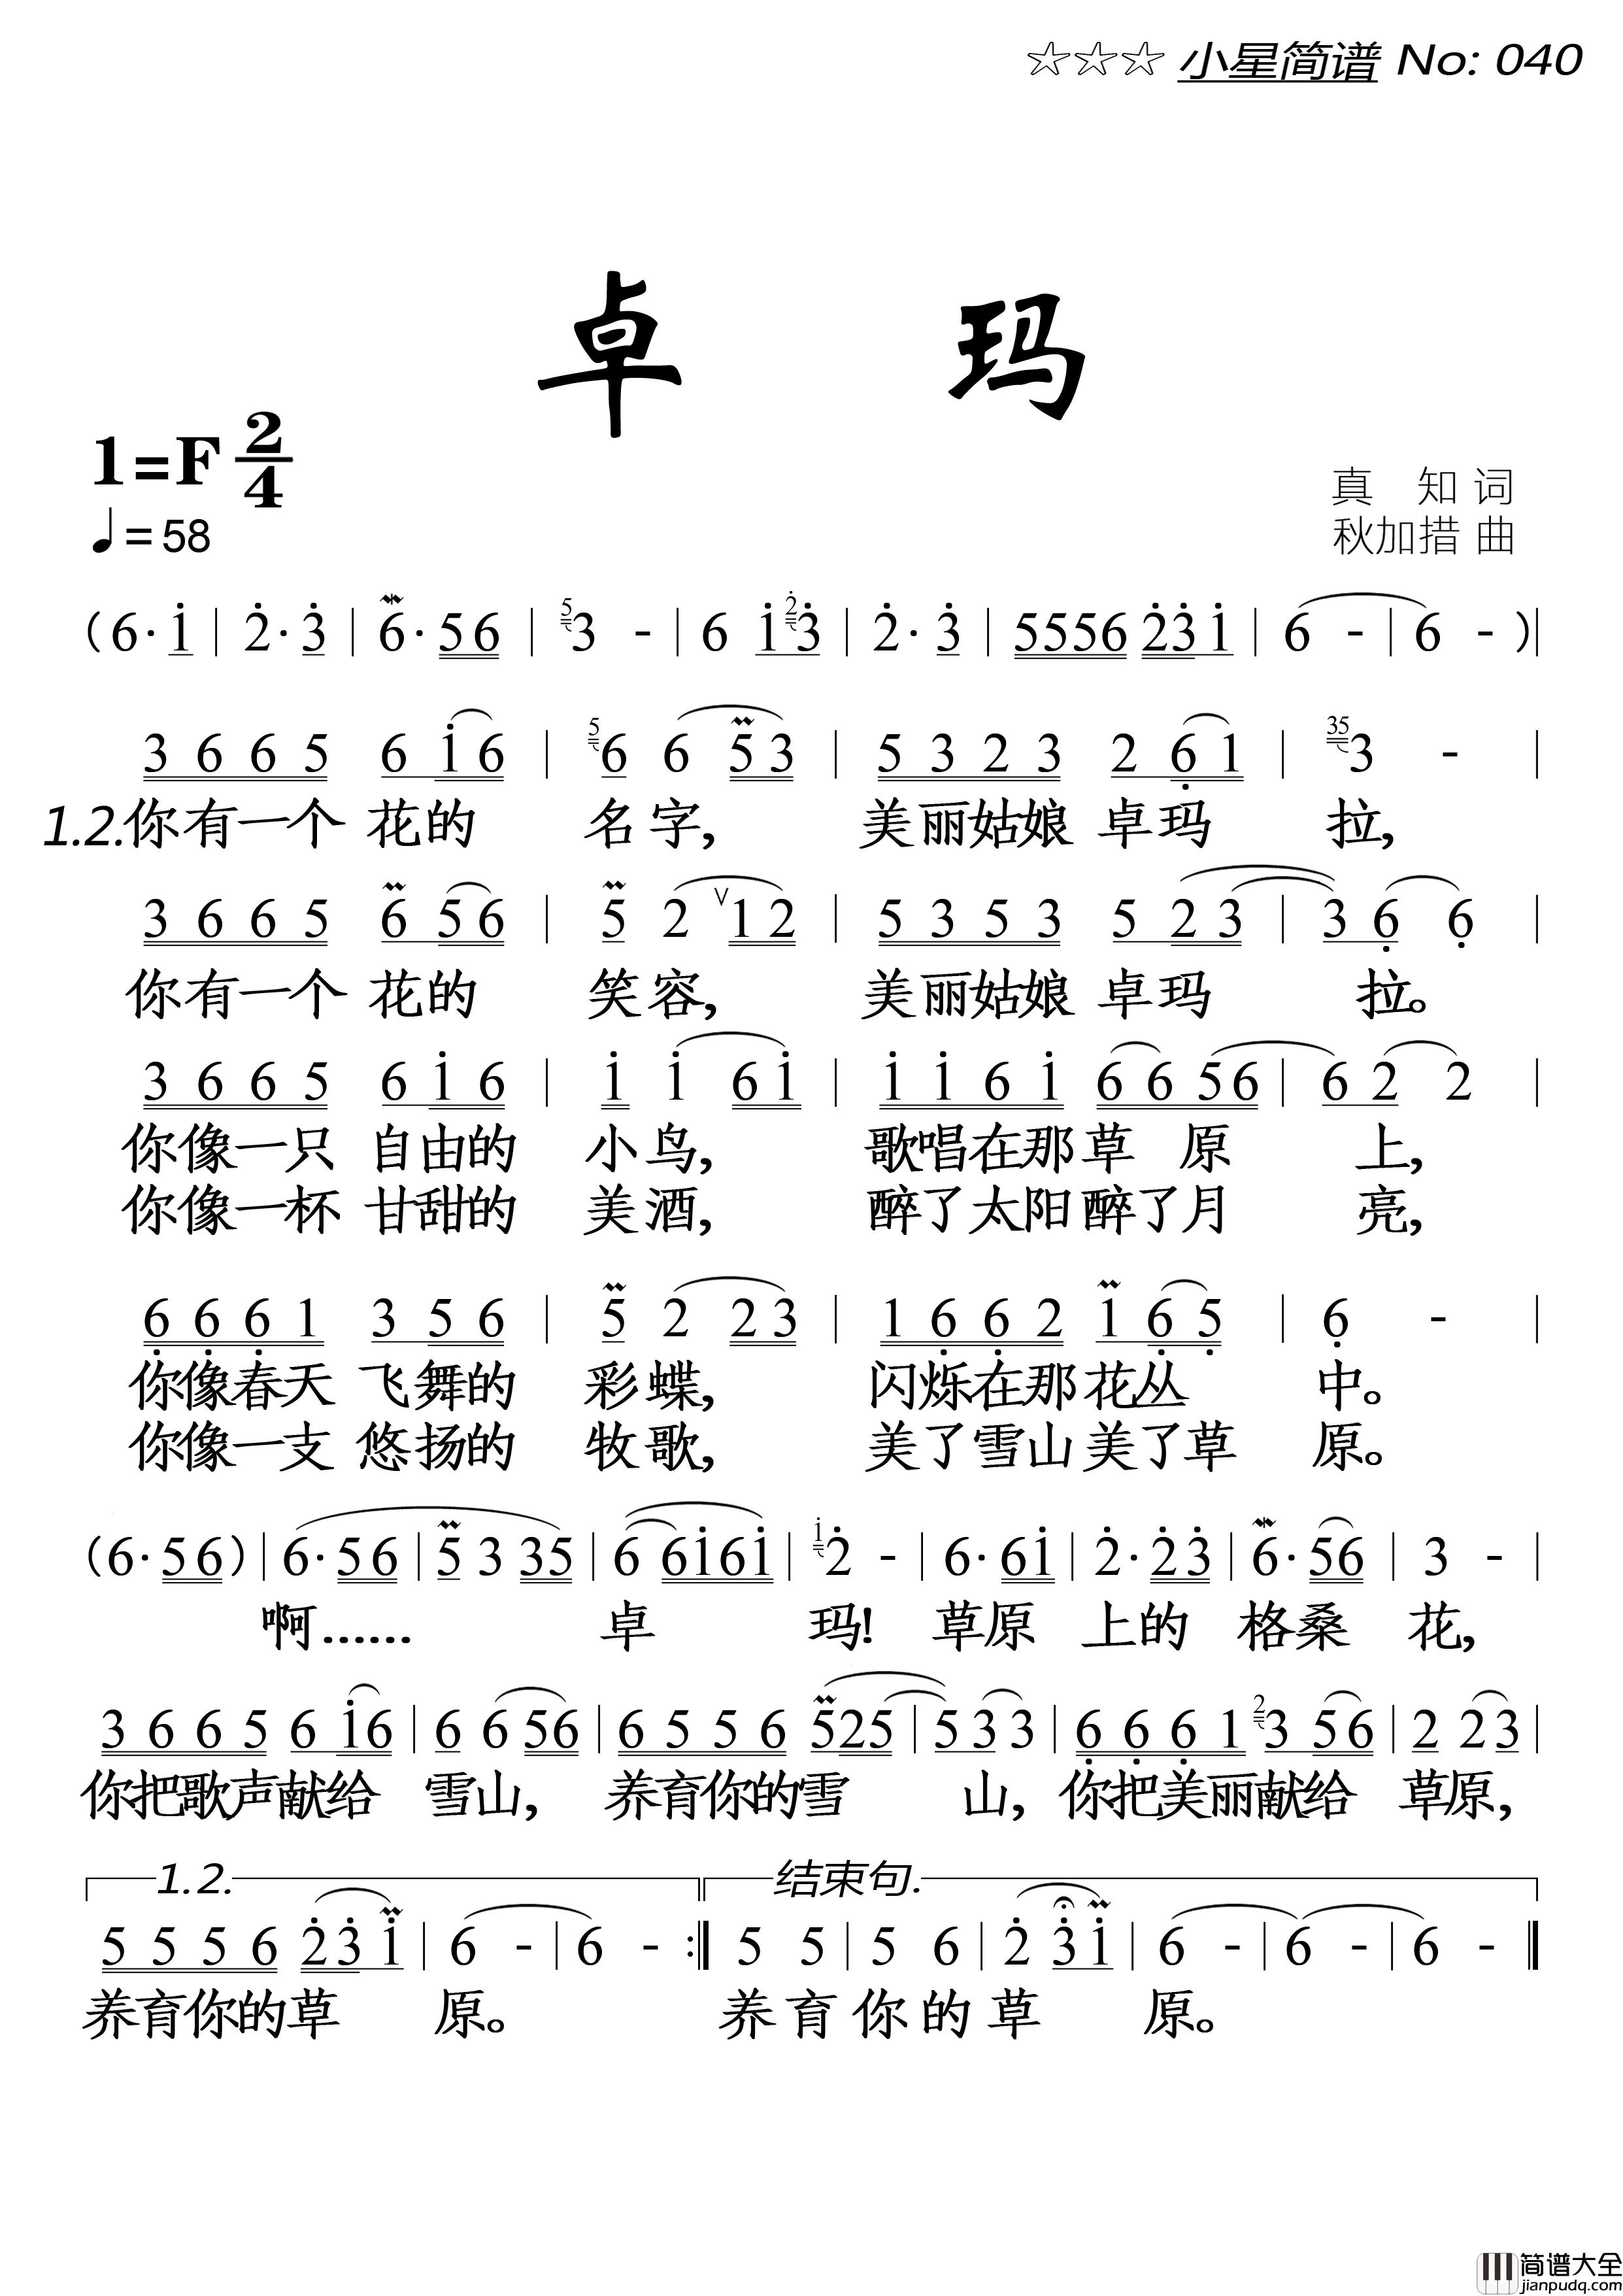 ☆☆☆ 小星简谱 No: 040
卓 玛
1=F 2/4
♩=58
真 知 词
秋加措 曲
(6· i | 2̇· 3̇ | 6· 56 | ⁵3 - | 6 i ²̇3̇ | 2̇· 3̇ | 5556 2̇3̇ i | 6 - | 6 - )|
3 6 6 5 6 i 6 | ⁵6 6 5 3 | 5 3 2 3 2 6̣ 1 | ³⁵3 - |
1.2.你有一个 花的 名字, 美丽姑娘 卓玛 拉,
3 6 6 5 6 5 6 | 5 2 ∨ 1 2 | 5 3 5 3 5 2 3 | 3 6̣ 6̣ |
你有一个 花的 笑容, 美丽姑娘 卓玛 拉。
3 6 6 5 6 i 6 | i i 6 i | i i 6 i 6 6 5 6 | 6 2 2 |
你像一只 自由的 小鸟, 歌唱在那草 原 上,
你像一杯 甘甜的 美酒, 醉了太阳醉了月 亮,
6̣ 6̣ 6̣ 1 3 5 6 | 5 2 2 3 | 1 6̣ 6̣ 2 1 6̣ 5̣ | 6̣ - |
你像春天 飞舞的 彩蝶, 闪烁在那花丛 中。
你像一支 悠扬的 牧歌, 美了雪山美了草 原。
(6· 56)| 6· 56 | 5 3 35 | 6 6i6i | ⁱ2̇ - | 6· 6i | 2̇· 2̇3̇ | 6· 56 | 3 - |
啊…… 卓 玛! 草原 上的 格桑 花,
3 6 6 5 6 i6 | 6 6 56 | 6 5 5 6 525 | 5 3 3 | 6̣ 6̣ 6̣ 1 ²3 56 | 2 2 3 |
你把歌声献给 雪山, 养育你的雪 山, 你把美丽献给 草原,
1.2. 结束句.
5 5 5 6 2̇3̇ i | 6 - | 6 - :‖ 5 5 | 5 6 | 2̇ 3̇ i | 6 - | 6 - | 6 - ‖
养育你的草 原。 养 育 你 的 草 原。
简谱大全
jianpudq.com